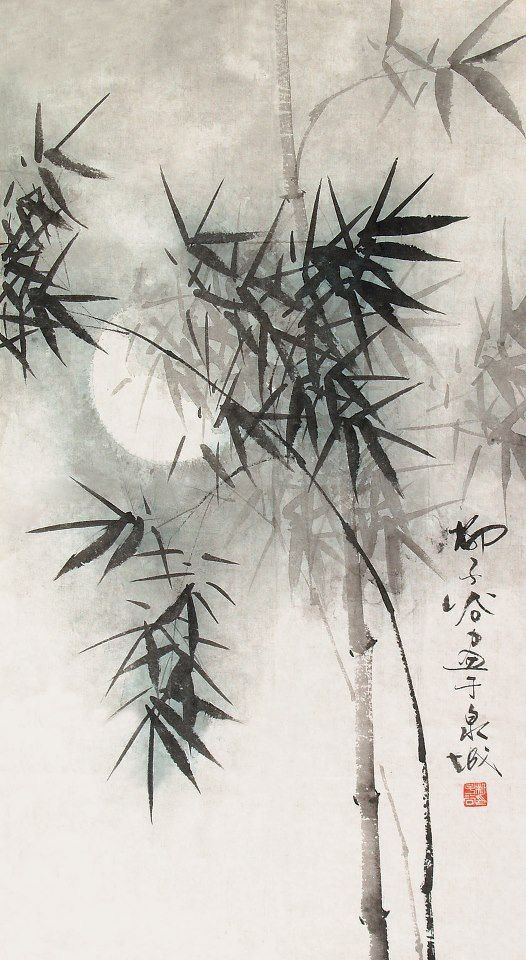 柳子谷画于泉城